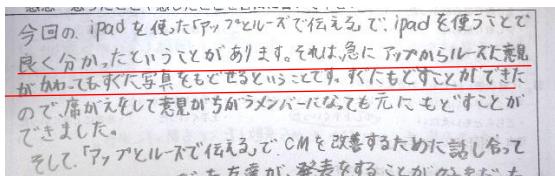 今回の、ipadを使った「アップとルーズで伝える」で、ipadを使うことで
良く分かったということがあります。それは、急にアップからルーズに意見
がかわってもすぐに写真をもどせるということです。すぐにもどすことができた
ので、席がえをして意見がちがうメンバーになっても元にもどすことが
できました。
そして、「アップとルーズで伝える」で、CMを改善するために話し合って
友達が、発表をすることが